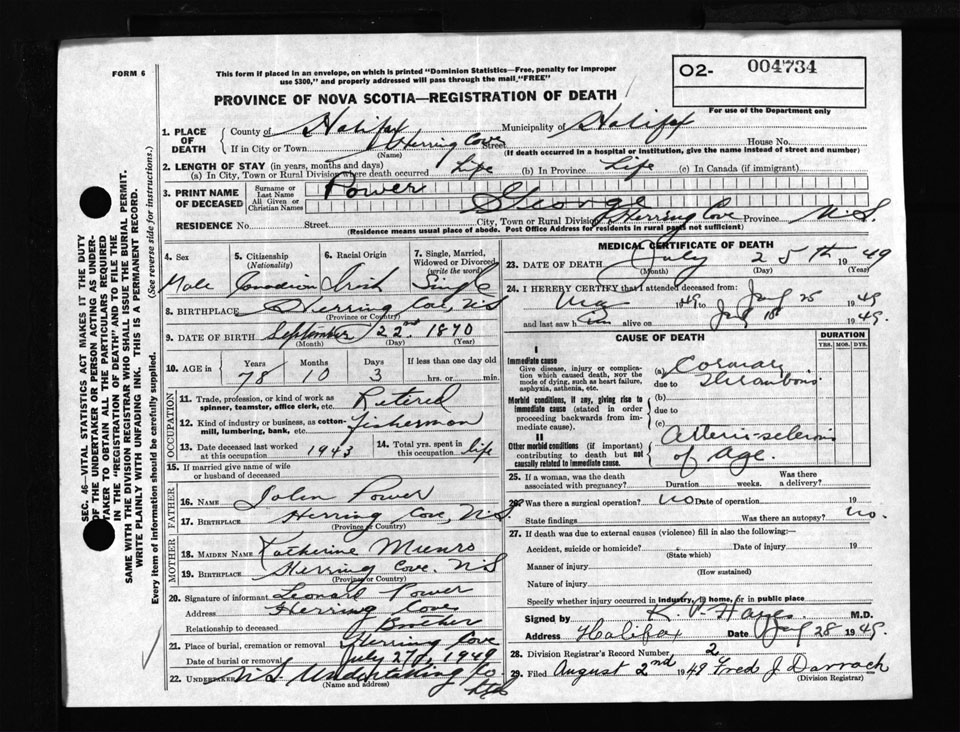 FORM 6
This form if placed in an envelope, on which is printed "Dominion Statistics—Free, penalty for improper
use $300," and properly addressed will pass through the mail, "FREE"
O2- 004734
For use of the Department only
PROVINCE OF NOVA SCOTIA—REGISTRATION OF DEATH
1. PLACE OF DEATH County of Halifax Municipality of Halifax
If in City or Town Herring Cove Street House No.
(Name) (If death occurred in a hospital or institution, give the name instead of street and number)
2. LENGTH OF STAY (in years, months and days)
(a) In City, Town or Rural Division where death occurred Life (b) In Province Life (c) In Canada (if immigrant)
3. PRINT NAME OF DECEASED Surname or Last Name Power
All Given or Christian Names George
RESIDENCE No. Street City, Town or Rural Division Herring Cove Province N.S.
(Residence means usual place of abode. Post Office Address for residents in rural parts not sufficient)
4. Sex 5. Citizenship (Nationality) 6. Racial Origin 7. Single, Married, Widowed or Divorced (write the word)
Male Canadian Irish Single
8. BIRTHPLACE Herring Cove, N.S
(Province or Country)
9. DATE OF BIRTH September 22nd 1870
(Month) (Day) (Year)
10. AGE in Years Months Days If less than one day old
78 10 3 hrs. or min.
OCCUPATION
11. Trade, profession, or kind of work as spinner, teamster, office clerk, etc. Retired
12. Kind of industry or business, as cotton-mill, lumbering, bank, etc. fisherman
13. Date deceased last worked at this occupation 1943 14. Total yrs. spent in this occupation life
15. If married give name of wife or husband of deceased
FATHER
16. NAME John Power
17. BIRTHPLACE Herring Cove, N.S
(Province or Country)
MOTHER
18. MAIDEN NAME Katherine Munro
19. BIRTHPLACE Herring Cove. N.S
(Province or Country)
20. Signature of informant Leonard Power
Address Herring Cove
Relationship to deceased Brother
21. Place of burial, cremation or removal Herring Cove
Date of burial or removal July 27, 1949
22. UNDERTAKER N.S. Undertaking Co Ltd
(Name and address)
MEDICAL CERTIFICATE OF DEATH
23. DATE OF DEATH July 25th 1949
(Month) (Day) (Year)
24. I HEREBY CERTIFY that I attended deceased from:
1949 to 25 1949
and last saw h im alive on 18 1949.
CAUSE OF DEATH DURATION
YRS. MOS. DYS.
I
Immediate cause
Give disease, injury or complication which caused death, nor the mode of dying, such as heart failure, asphyxia, asthenia, etc.
(a)
due to
Morbid conditions, if any, giving rise to immediate cause (stated in order proceeding backwards from immediate cause).
(b)
due to
(c)
II
Other morbid conditions (if important) contributing to death but not causally related to immediate cause.
of age.
25. If a woman, was the death associated with pregnancy? Duration weeks. Was there a delivery?
26. Was there a surgical operation? no Date of operation 19
State findings Was there an autopsy? no.
27. If death was due to external causes (violence) fill in also the following:—
Accident, suicide or homicide? Date of injury 19
(State which)
Manner of injury
(How sustained)
Nature of injury
Specify whether injury occurred in industry, in home, or in public place
Signed by Hayes M.D.
Address Halifax Date 28 1949.
28. Division Registrar's Record Number 2
29. Filed August 2nd 1949 Fred J. Darrach
(Division Registrar)
SEC. 46—VITAL STATISTICS ACT MAKES IT THE DUTY
OF THE UNDERTAKER OR PERSON ACTING AS UNDER-
TAKER TO OBTAIN ALL THE PARTICULARS REQUIRED
IN THE "REGISTRATION OF DEATH" AND TO FILE THE
SAME WITH THE DIVISION REGISTRAR WHO SHALL ISSUE THE BURIAL PERMIT.
WRITE PLAINLY WITH UNFADING INK. THIS IS A PERMANENT RECORD.
Every item of Information should be carefully supplied. (See reverse side for instructions.)